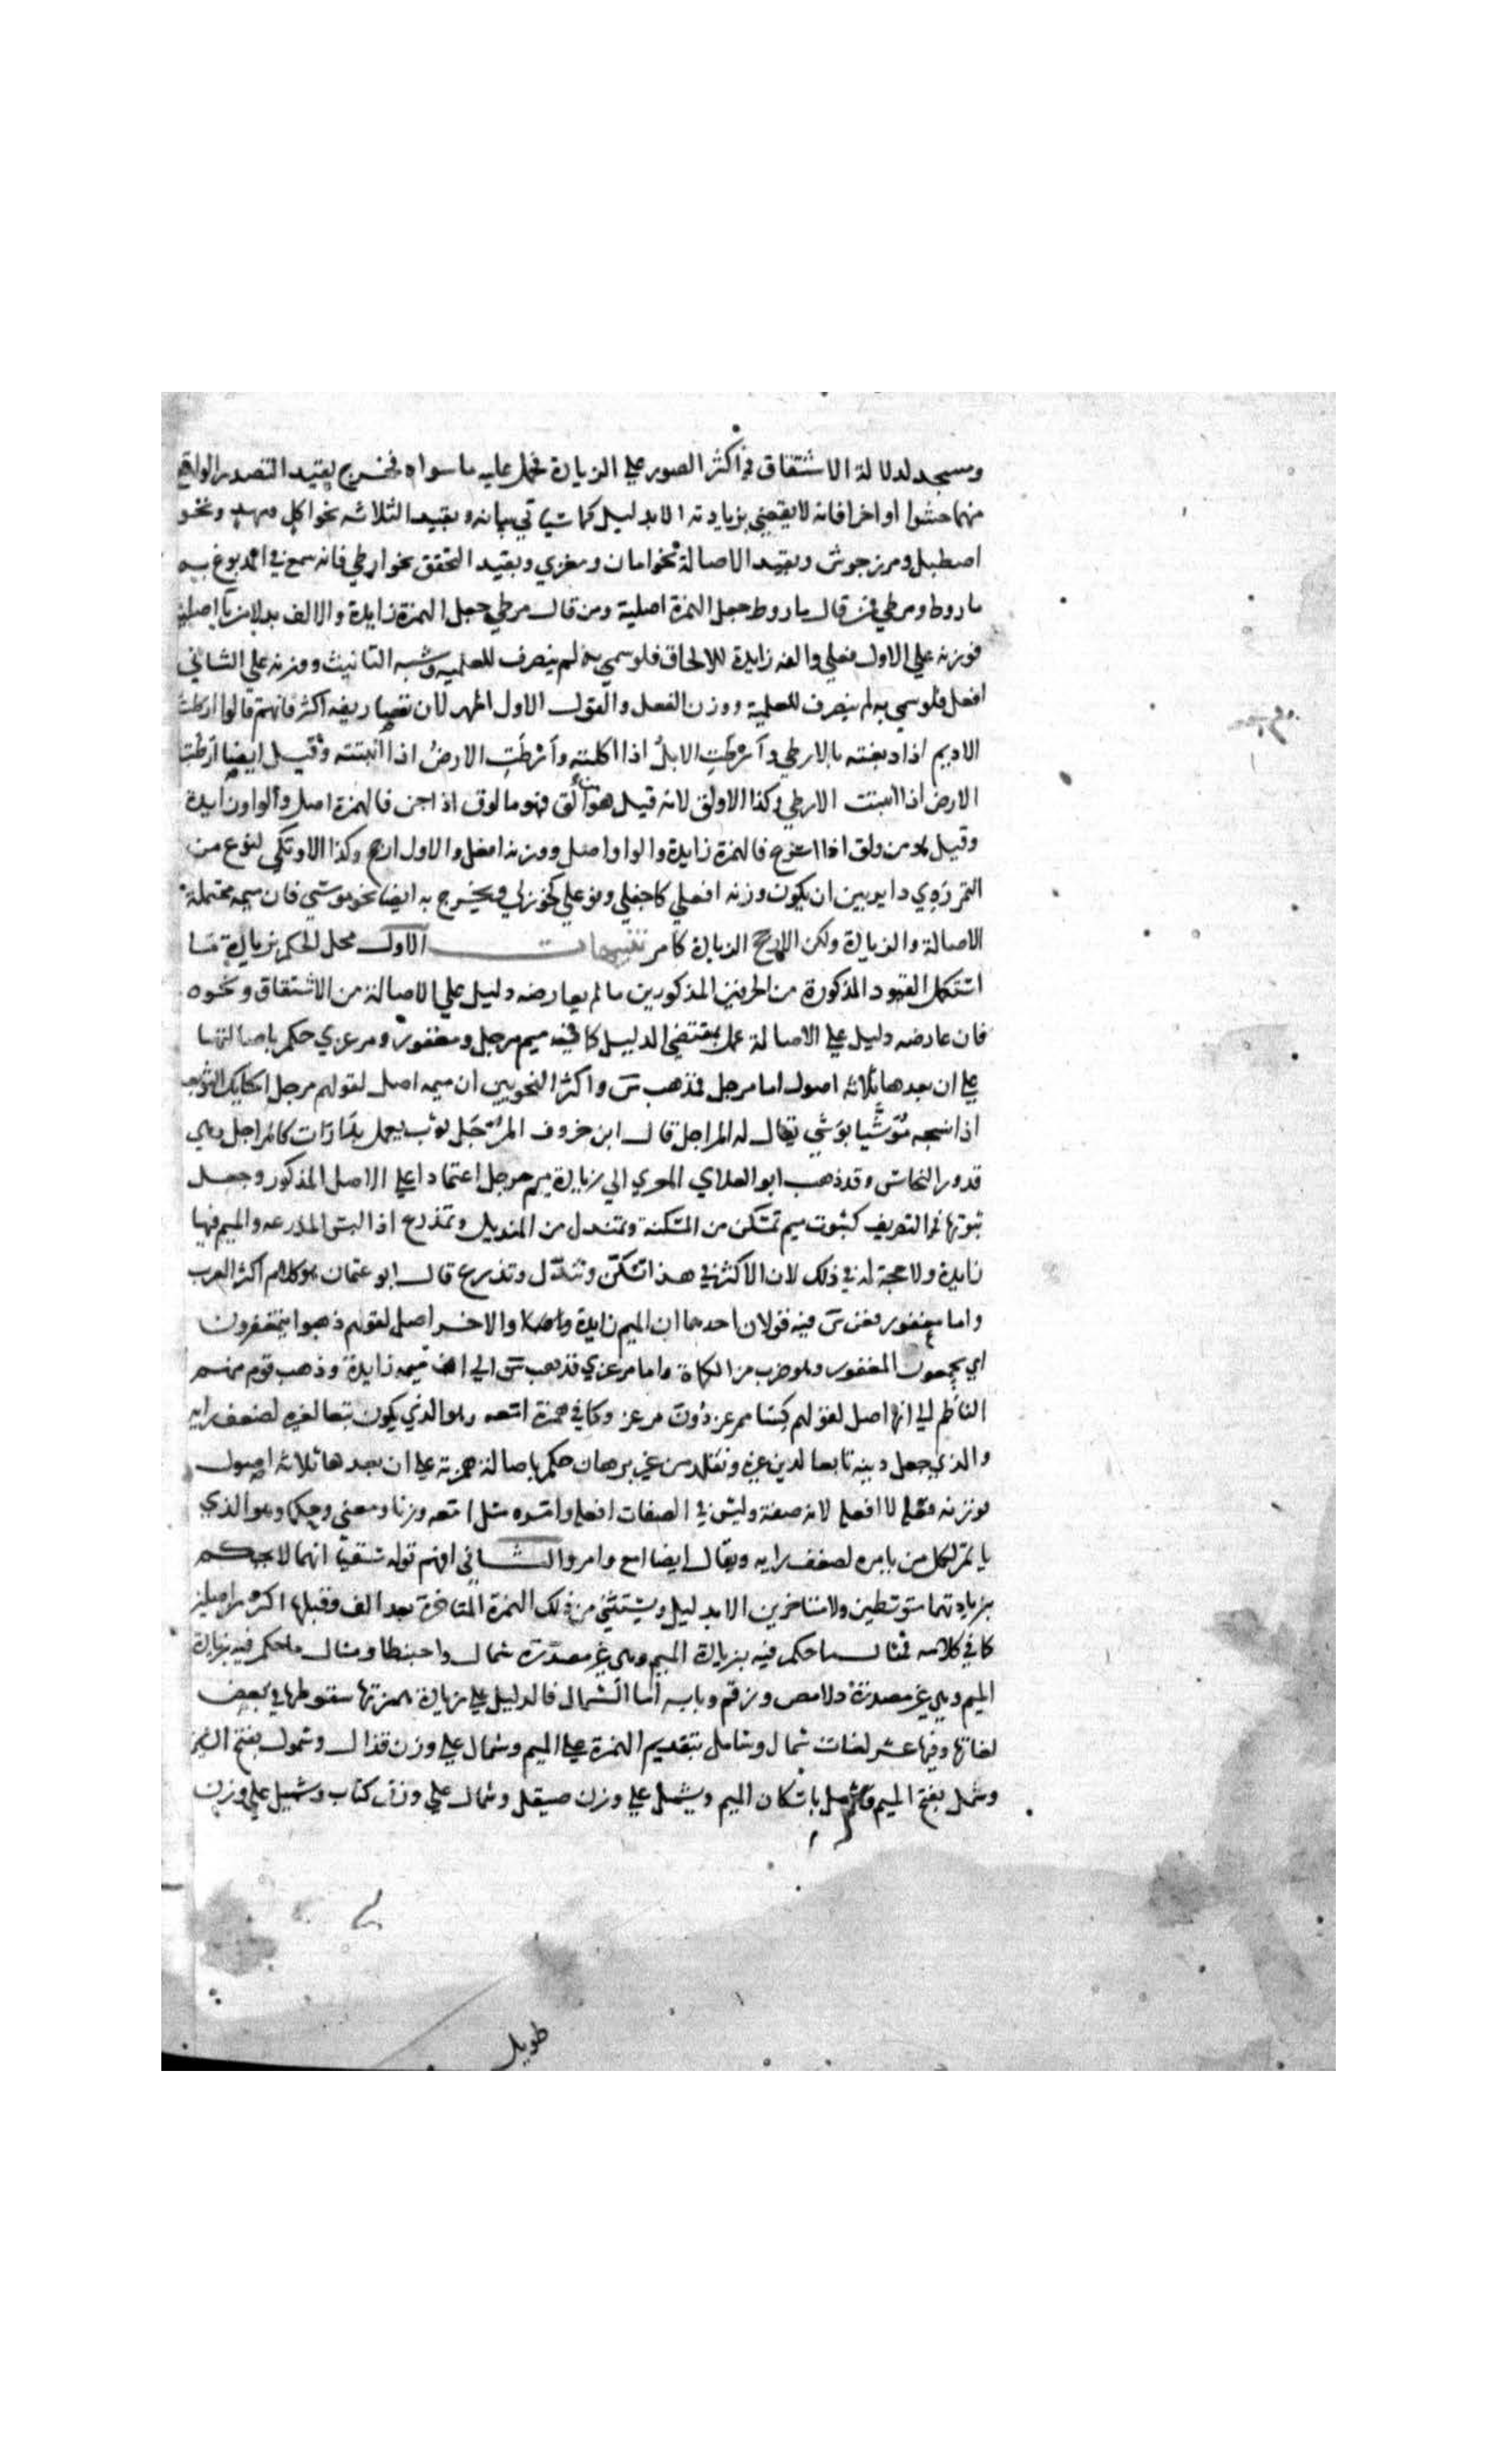 ومسجد لدلالة الاشتقاق في اكثر الصور علي الزيادة فحمل عليه ما سواه فخرج بقيد التصدر الواقع
منهما حشوا او اخرا فانه لا يقضي بزيادته الا بدليل كما سياتي بيانه وبقيد الثلاثه نحو اكل ومهد ونحو
اصطبل ومرزجوش وبقيد الاصالة نحو امان ومعزي وبقيد التحقق نحو ارطي فانه سمع في المدبوغ به
ماروط ومرطي فمن قال ماروط جعل الهمزة اصلية ومن قال مرطي جعل الهمزة زايدة والالف بدلا من يا اصلية
فوزنه علي الاول فعلي والفه زايدة للالحاق فلو سمي به لم ينصرف للعلميه وشبه التانيث ووزنه علي الثاني
افعل فلو سمي به لم ينصرف للعلمية ووزن الفعل والقول الاول اظهر لان تصاريفه اكثر فانهم قالوا ارطت
الاديم اذا دبغته بالارطي وآرطت الابل اذا اكلته وآرطت الارض اذا انبتته وقيل ايضا ارطت
الارض اذا انبتت الارطي وكذا الاولق لانه قيل هو من الق فهو مالوق اذا جن فالهمزة اصل والواو زايدة
وقيل هو من ولق اذا اسرع فالهمزة زايدة والواو اصل ووزنه افعل والاول ارجح وكذا الاوتكي لنوع من
التمر ردي داير بين ان يكون وزنه افعلي كاجفلي وفوعلي كخوزلي ويخرج به ايضا نحو موسي فان ميمه محتملة
الاصالة والزيادة ولكن الارجح الزيادة كما مر تنبيهات الاول محل الحكم بزيادة ما
استكمل القيود المذكورة من الحرفين المذكورين ما لم يعارضه دليل علي الاصالة من الاشتقاق ونحوه
فان عارضه دليل علي الاصالة عمل بمقتضي الدليل كما في ميم مرجل ومغفور ومرعزي حكم باصالتها
علي ان بعدها ثلاثه اصول اما مرجل فمذهب س واكثر النحويين ان ميمه اصل لقولهم مرجل الحايك الثوب
اذا نسجه موشيا بوشي يقال له المراجل قال ابن خروف المرجل ثوب يعمل بدارات كالمراجل وهي
قدور النحاس وقد ذهب ابو العلاي المعري الي زيادة ميم مرجل اعتمادا علي الاصل المذكور وجعل
ثبوتها في التصريف كثبوت ميم تمسكن من المسكنة وتمندل من المنديل وتمدرع اذا لبس المدرعه والميم فيها
زايدة ولا حجة له في ذلك لان الاكثر في هذا تسكن وتندل وتدرع قال ابو عثمان هو كلام اكثر العرب
واما مغفور فعن س فيه قولان احدهما ان الميم زايدة والاخر اصل لقولهم ذهبوا يتمغفرون
اي يجمعون المغفور وهو ضرب من الكماة واما مرعزي فذهب س الي ان ميمه زايدة وذهب قوم منهم
الناظم الي انها اصل لقولهم كسا ممرعز دون مرعز وكما في همزة امعه وهو الذي يكون تبعا لغيره لضعف رايه
والذي جعل دينه تابعا لدين غيره ونقلد من غير برهان حكم باصالة همزته علي ان بعدها ثلاثه اصول
فوزنه فعلة لا افعلة لانه صفة وليس في الصفات افعلة وامره مثل امعه وزنا ومعني وحكما وهو الذي
ياتمر لكل من يامره لضعف رايه ويقال ايضا امع وامر والثاني افهم قوله سبقا انهما لا يحكم
بزيادتهما متوسطين ولا متاخرين الا بدليل ويستثني من ذلك الهمزة المتاخرة بعد الف وقبلها اكثر من اصلين
كما في كلامه فمثال ما حكم فيه بزيادة الميم وهي غير مصدرة شمال واحبنطا ومثال ما حكم فيه بزيادة
الميم وهي غير مصدرة دلامص وزرقم وبابه اما الشمال فالدليل علي زيادة همزتها سقوطها في بعض
لغاتها وفيها عشر لغات شمال وشامل بتقديم الهمزة علي الميم وشمال علي وزن قذال وشمول بفتح الشين
وشمل بفتح الميم وشمل باسكان الميم وشيمل علي وزن صيقل وشمال علي وزن كتاب وشميل علي وزن
طويل